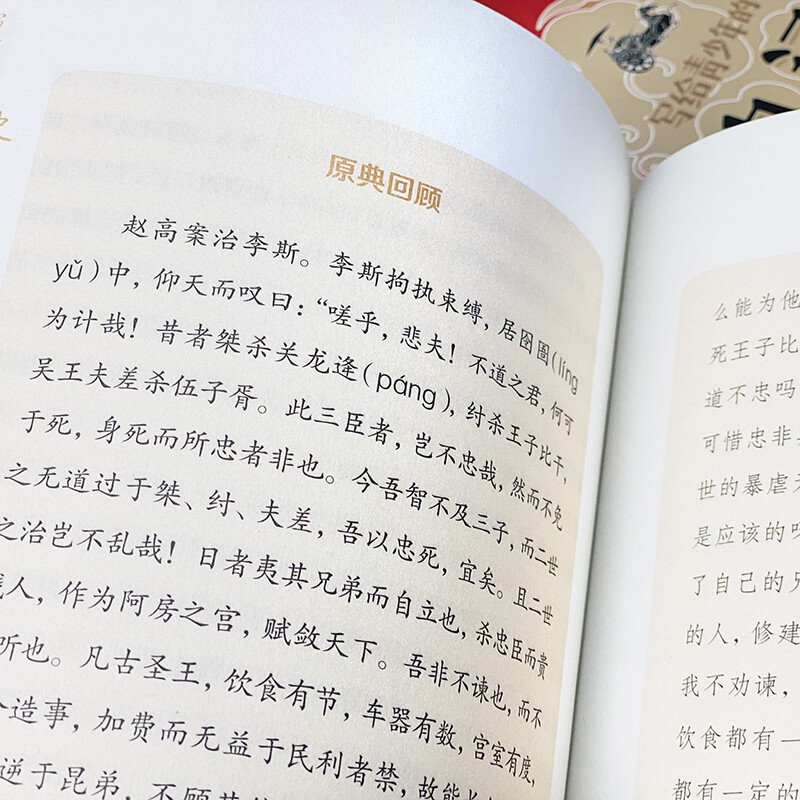 写给青少年的
史
原典回顾
赵高案治李斯。李斯拘执束缚，居囹圄(líng
yǔ)中，仰天而叹曰：“嗟乎，悲夫！不道之君，何可
为计哉！昔者桀杀关龙逄(páng)，纣杀王子比干，
吴王夫差杀伍子胥。此三臣者，岂不忠哉，然而不免
于死，身死而所忠者非也。今吾智不及三子，而二世
之无道过于桀、纣、夫差，吾以忠死，宜矣。且二世
之治岂不乱哉！日者夷其兄弟而自立也，杀忠臣而贵
贱人，作为阿房之宫，赋敛天下。吾非不谏也，而不
听也。凡古圣王，饮食有节，车器有数，宫室有度，
造事，加费而无益于民利者禁，故能长
逆于昆弟，不顾其
么能为他
死王子比
道不忠吗
可惜忠非
世的暴虐
是应该的
了自己的兄
的人，修建
我不劝谏，
饮食都有一
都有一定的